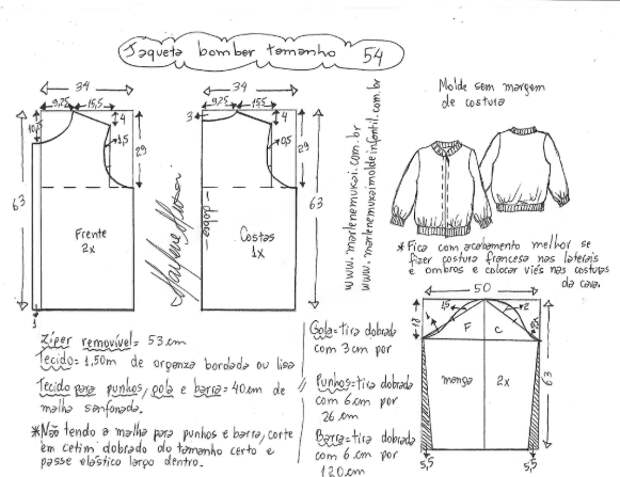 Jaqueta bomber tamanho 54
34
9,75
15,5
4
10,5
1,5
29
63
Frente
2x
1
34
9,75
15,5
3
4
0,5
29
63
dobra
Costas
1x
Marlene Mukai
www.marlenemukai.com.br
www.marlenemukaimoldeinfantil.com.br
Molde sem margem
de costura
*Fica com acabamento melhor se
fizer costura francesa nas laterais
e ombros e colocar viés nas costuras
da cava.
50
1,5
2
1
F
C
manga
2x
63
5,5
5,5
Zíper removível= 53 cm
Tecido= 1,50m de organza bordada ou lisa
Tecido para punhos, gola e barra= 40cm de
malha sanfonada.
*Não tendo a malha para punhos e barra, corte
em cetim dobrado do tamanho certo e
passe elástico largo dentro.
Gola= tira dobrada
com 3cm por
Punhos= tira dobrada
com 6cm por
26 cm
Barra= tira dobrada
com 6 cm por
120cm